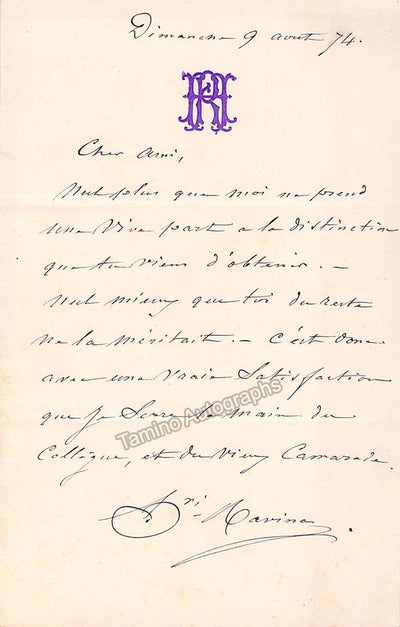 Dimanche 9 aout 74.
HR
Cher Ami,
Nul plus que moi ne prend
une Vive part a la distinction
que tu viens d'obtenir. —
Nul mieux que toi du reste
ne la méritait. — C'est donc
avec une Vraie Satisfaction
que je Serre la main du
Collègue, et du Vieux Camarade.
Tamino Autographs
Hri Ravina